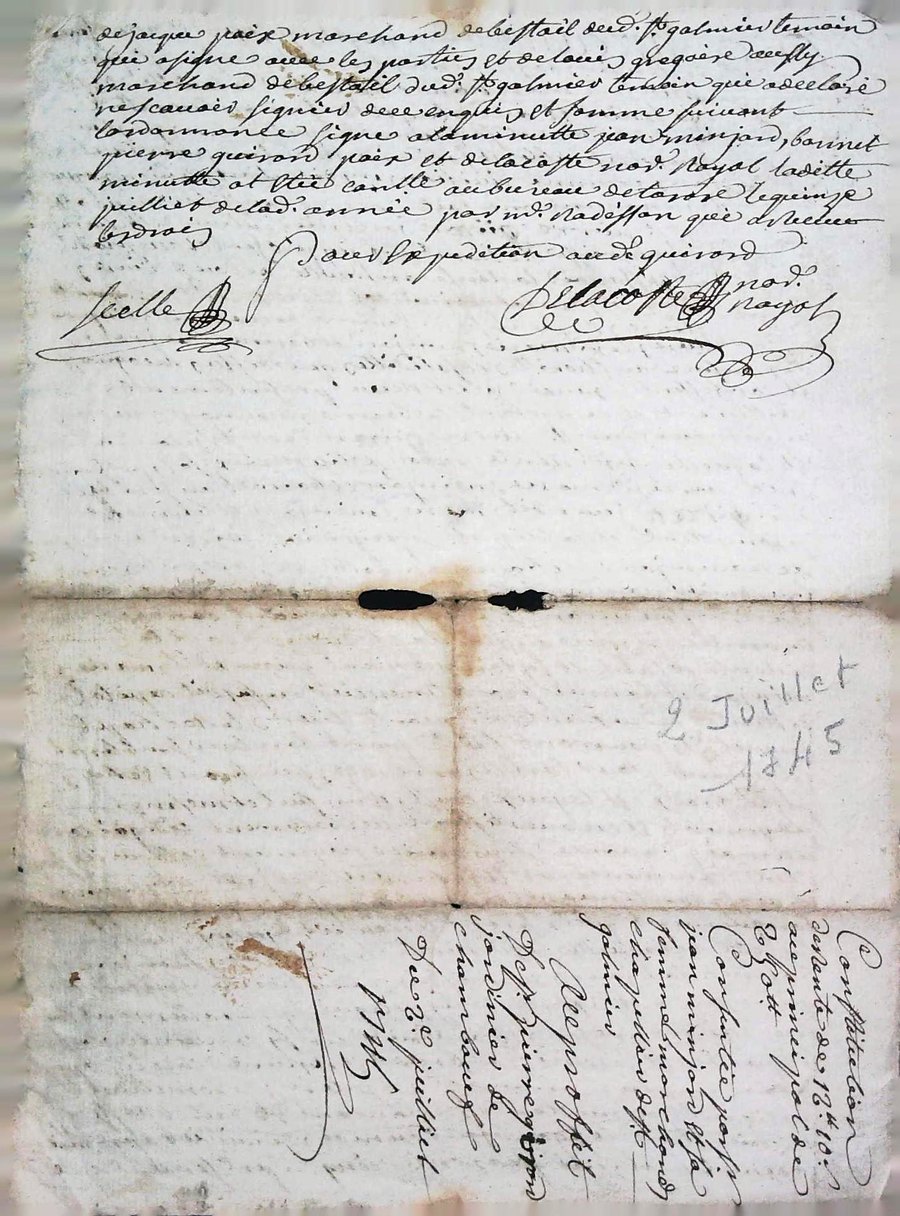 de jacque paix marchand de bestail dud. st. galmier temoin
qui a signé avec les parties et de louis gregoire
marchand de bestail dud. st. galmier temoin qui a declaré
ne scavoir signier de ce enquis et somme suivant
lordonnance signe a la minutte jean minjard, bonnet
pierre guirard paix et delacoste nore. Royal ladette
minutte a esteé au bureau de le quinze
juillet de lad. année par mr. qui a receu
les drois
Pour Expedition aud. guirard
Scellé
Delacoste nore.
Royal
2 Juillet
1745
Constitution
de rente de 12lt 10s
au principal de
250lt
Consentie par sr
jean minjard et sa
femme marchand
chapellier de st
galmier
Au proffit
De sr pierre
jardinier de
chambœuf
Du 2e juilliet
1745